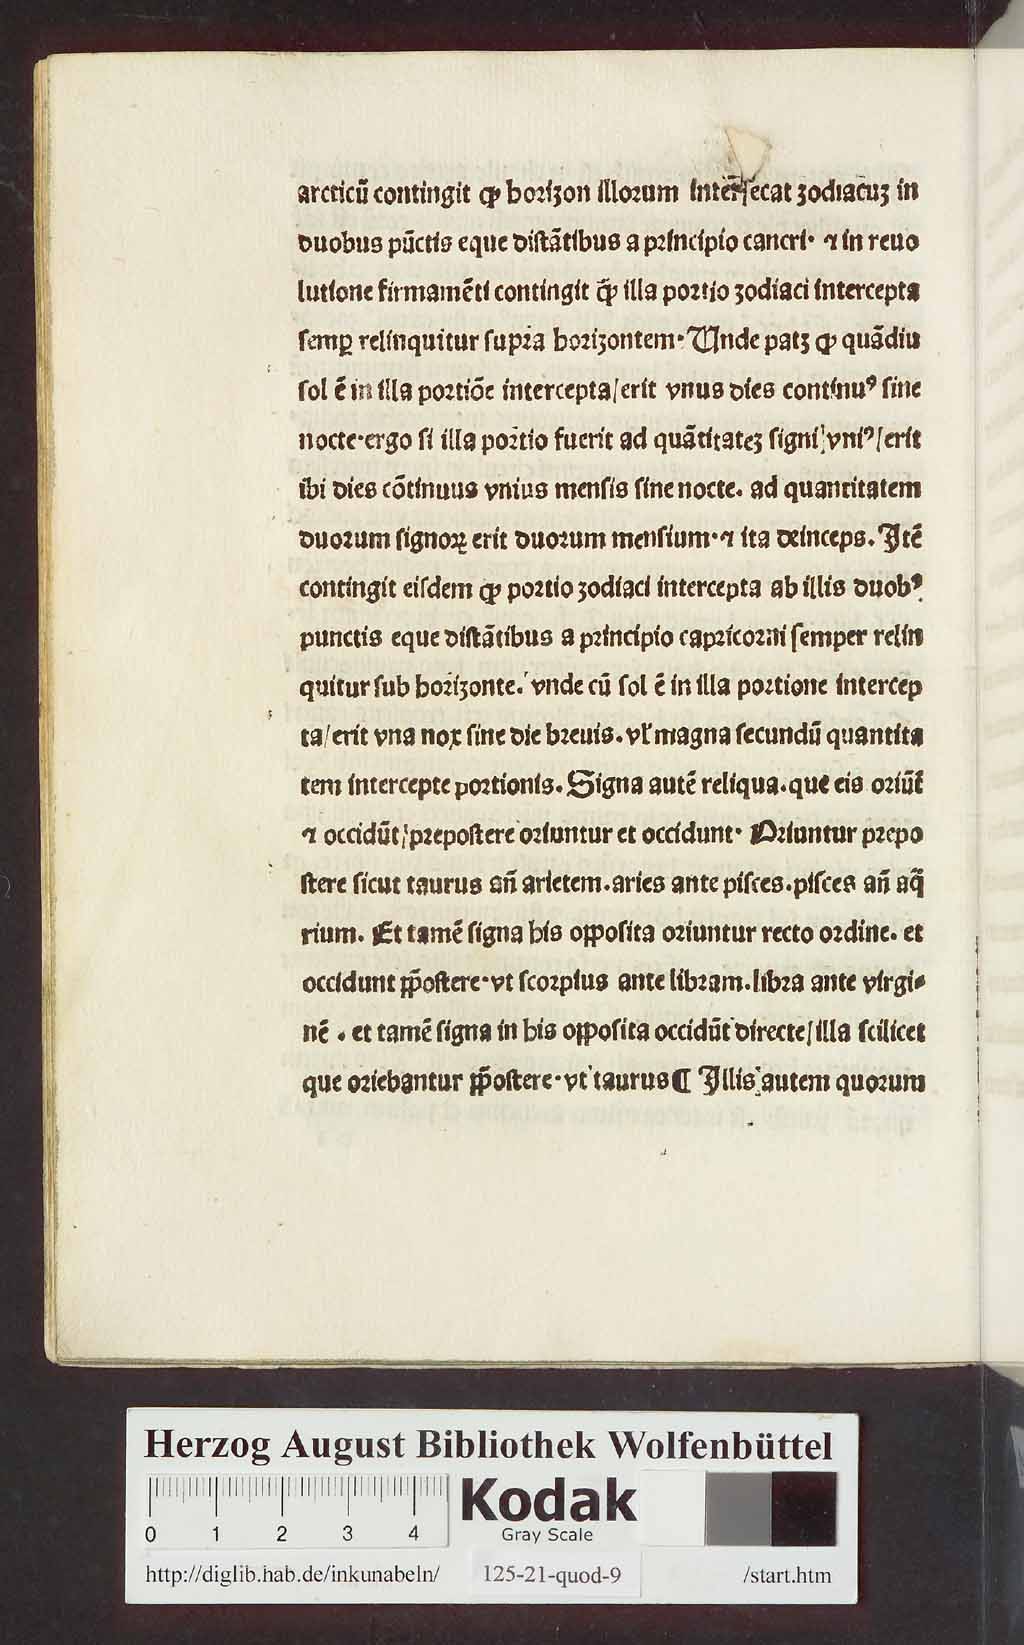 arcticū contingit ꝙ horizon illorum inter̄secat zodiacuꝫ in
duobus pūctis eque distātibus a principio cancri· ⁊ in reuo
lutione firmamēti contingit ꝙ̄ illa portio zodiaci intercepta
semꝑ relinquitur supra horizontem· Unde patꝫ ꝙ quādiu
sol ē in illa portiōe intercepta/erit vnus dies continuꝰ sine
nocte·ergo si illa portio fuerit ad quātitateꝫ signi vniꝰ/erit
ibi dies cōtinuus vnius mensis sine nocte. ad quantitatem
duorum signoꝝ erit duorum mensium·⁊ ita deinceps. Itē
contingit eisdem ꝙ portio zodiaci intercepta ab illis duobꝰ
punctis eque distātibus a principio capricorni semper relin
quitur sub horizonte. vnde cū sol ē in illa portione intercep
ta/erit vna nox sine die breuis. vl' magna secundū quantita
tem intercepte portionis. Signa autē reliqua. que eis oriūt
⁊ occidūt/prepostere oriuntur et occidunt· Oriuntur prepo
stere sicut taurus an̄ arietem. aries ante pisces. pisces an̄ aq̄
rium. Et tamē signa his opposita oriuntur recto ordine. et
occidunt p̄postere·vt scorpius ante libram. libra ante virgi⸗
nē . et tamē signa in his opposita occidūt directe/illa scilicet
que oriebantur p̄postere·vt taurus ¶ Illis autem quorum
Herzog August Bibliothek Wolfenbüttel
0 1 2 3 4
Kodak
Gray Scale
http://diglib.hab.de/inkunabeln/ 125-21-quod-9 /start.htm